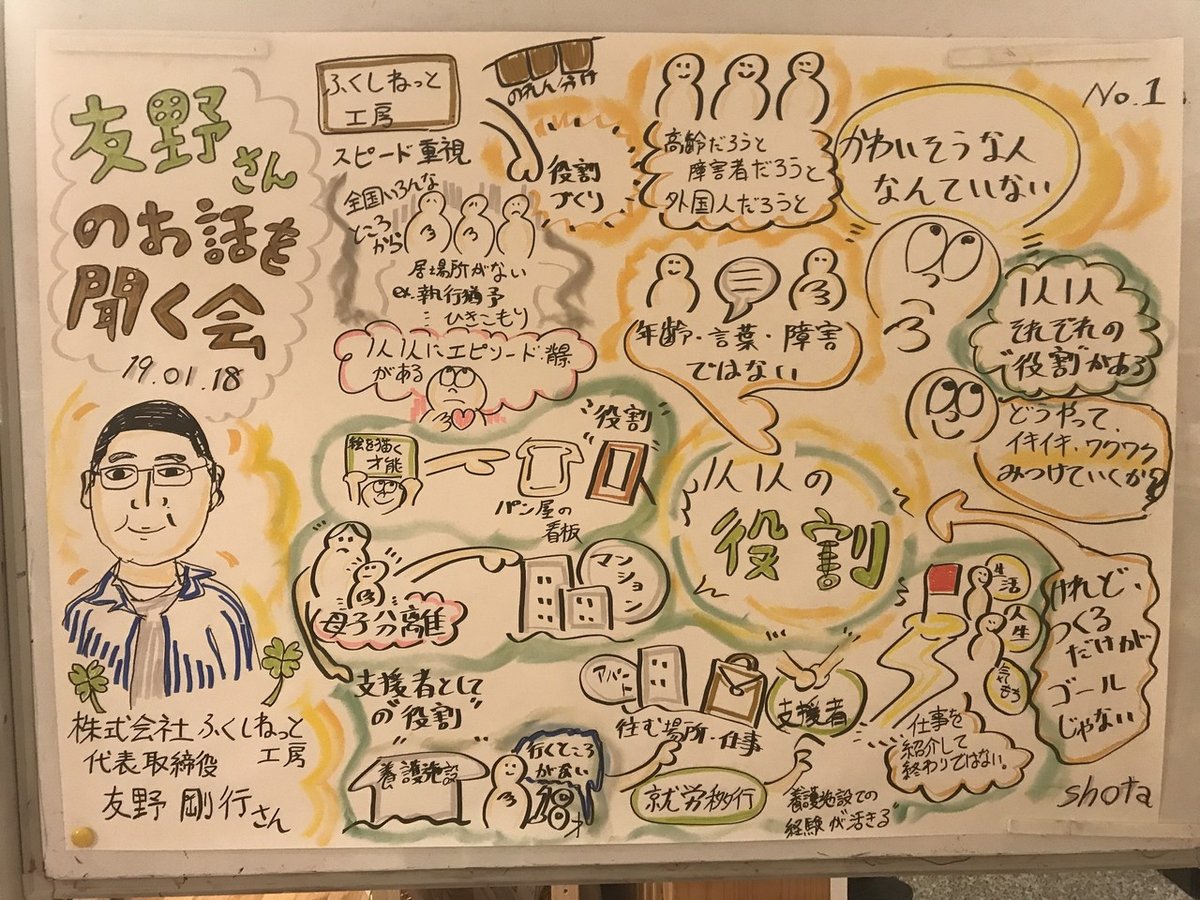 友野さん
のお話を
聞く会
19.01.18
株式会社ふくしねっと
工房
代表取締役
友野 剛行さん
ふくしねっと
工房
スピード重視
のれん分け
役割
づくり
全国いろんな
ところ
から
居場所がない
ex.執行猶予
ひきこもり
1人1人にエピソード・背景
がある
高齢だろうと
障害者だろうと
外国人だろうと
年齢・言葉・障害
ではない
No.1
かわいそうな人
なんていない
1人1人
それぞれの
"役割"がある
どうやって、
イキイキ、ワクワク
みつけていくか?
1人1人の
役割
絵を描く
才能
パン屋の
看板
"役割"
母子分離
マンション
支援者として
の"役割"
養護施設
行くところ
がない
18才
アパート
住む場所・仕事
支援者
就労移行
養護施設での
経験が活きる
生活
人生
仕事を
紹介して
終わりではない。
けれど、
つくる
だけが
ゴール
じゃない
shota